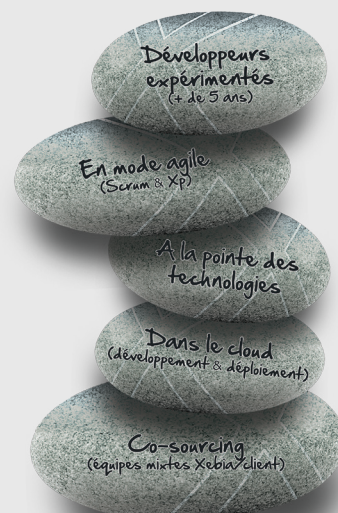 Développeurs
expérimentés
(+ de 5 ans)
En mode agile
(Scrum & Xp)
A la pointe des
technologies
Dans le cloud
(développement & déploiement)
Co-sourcing
(équipes mixtes Xebia/client)